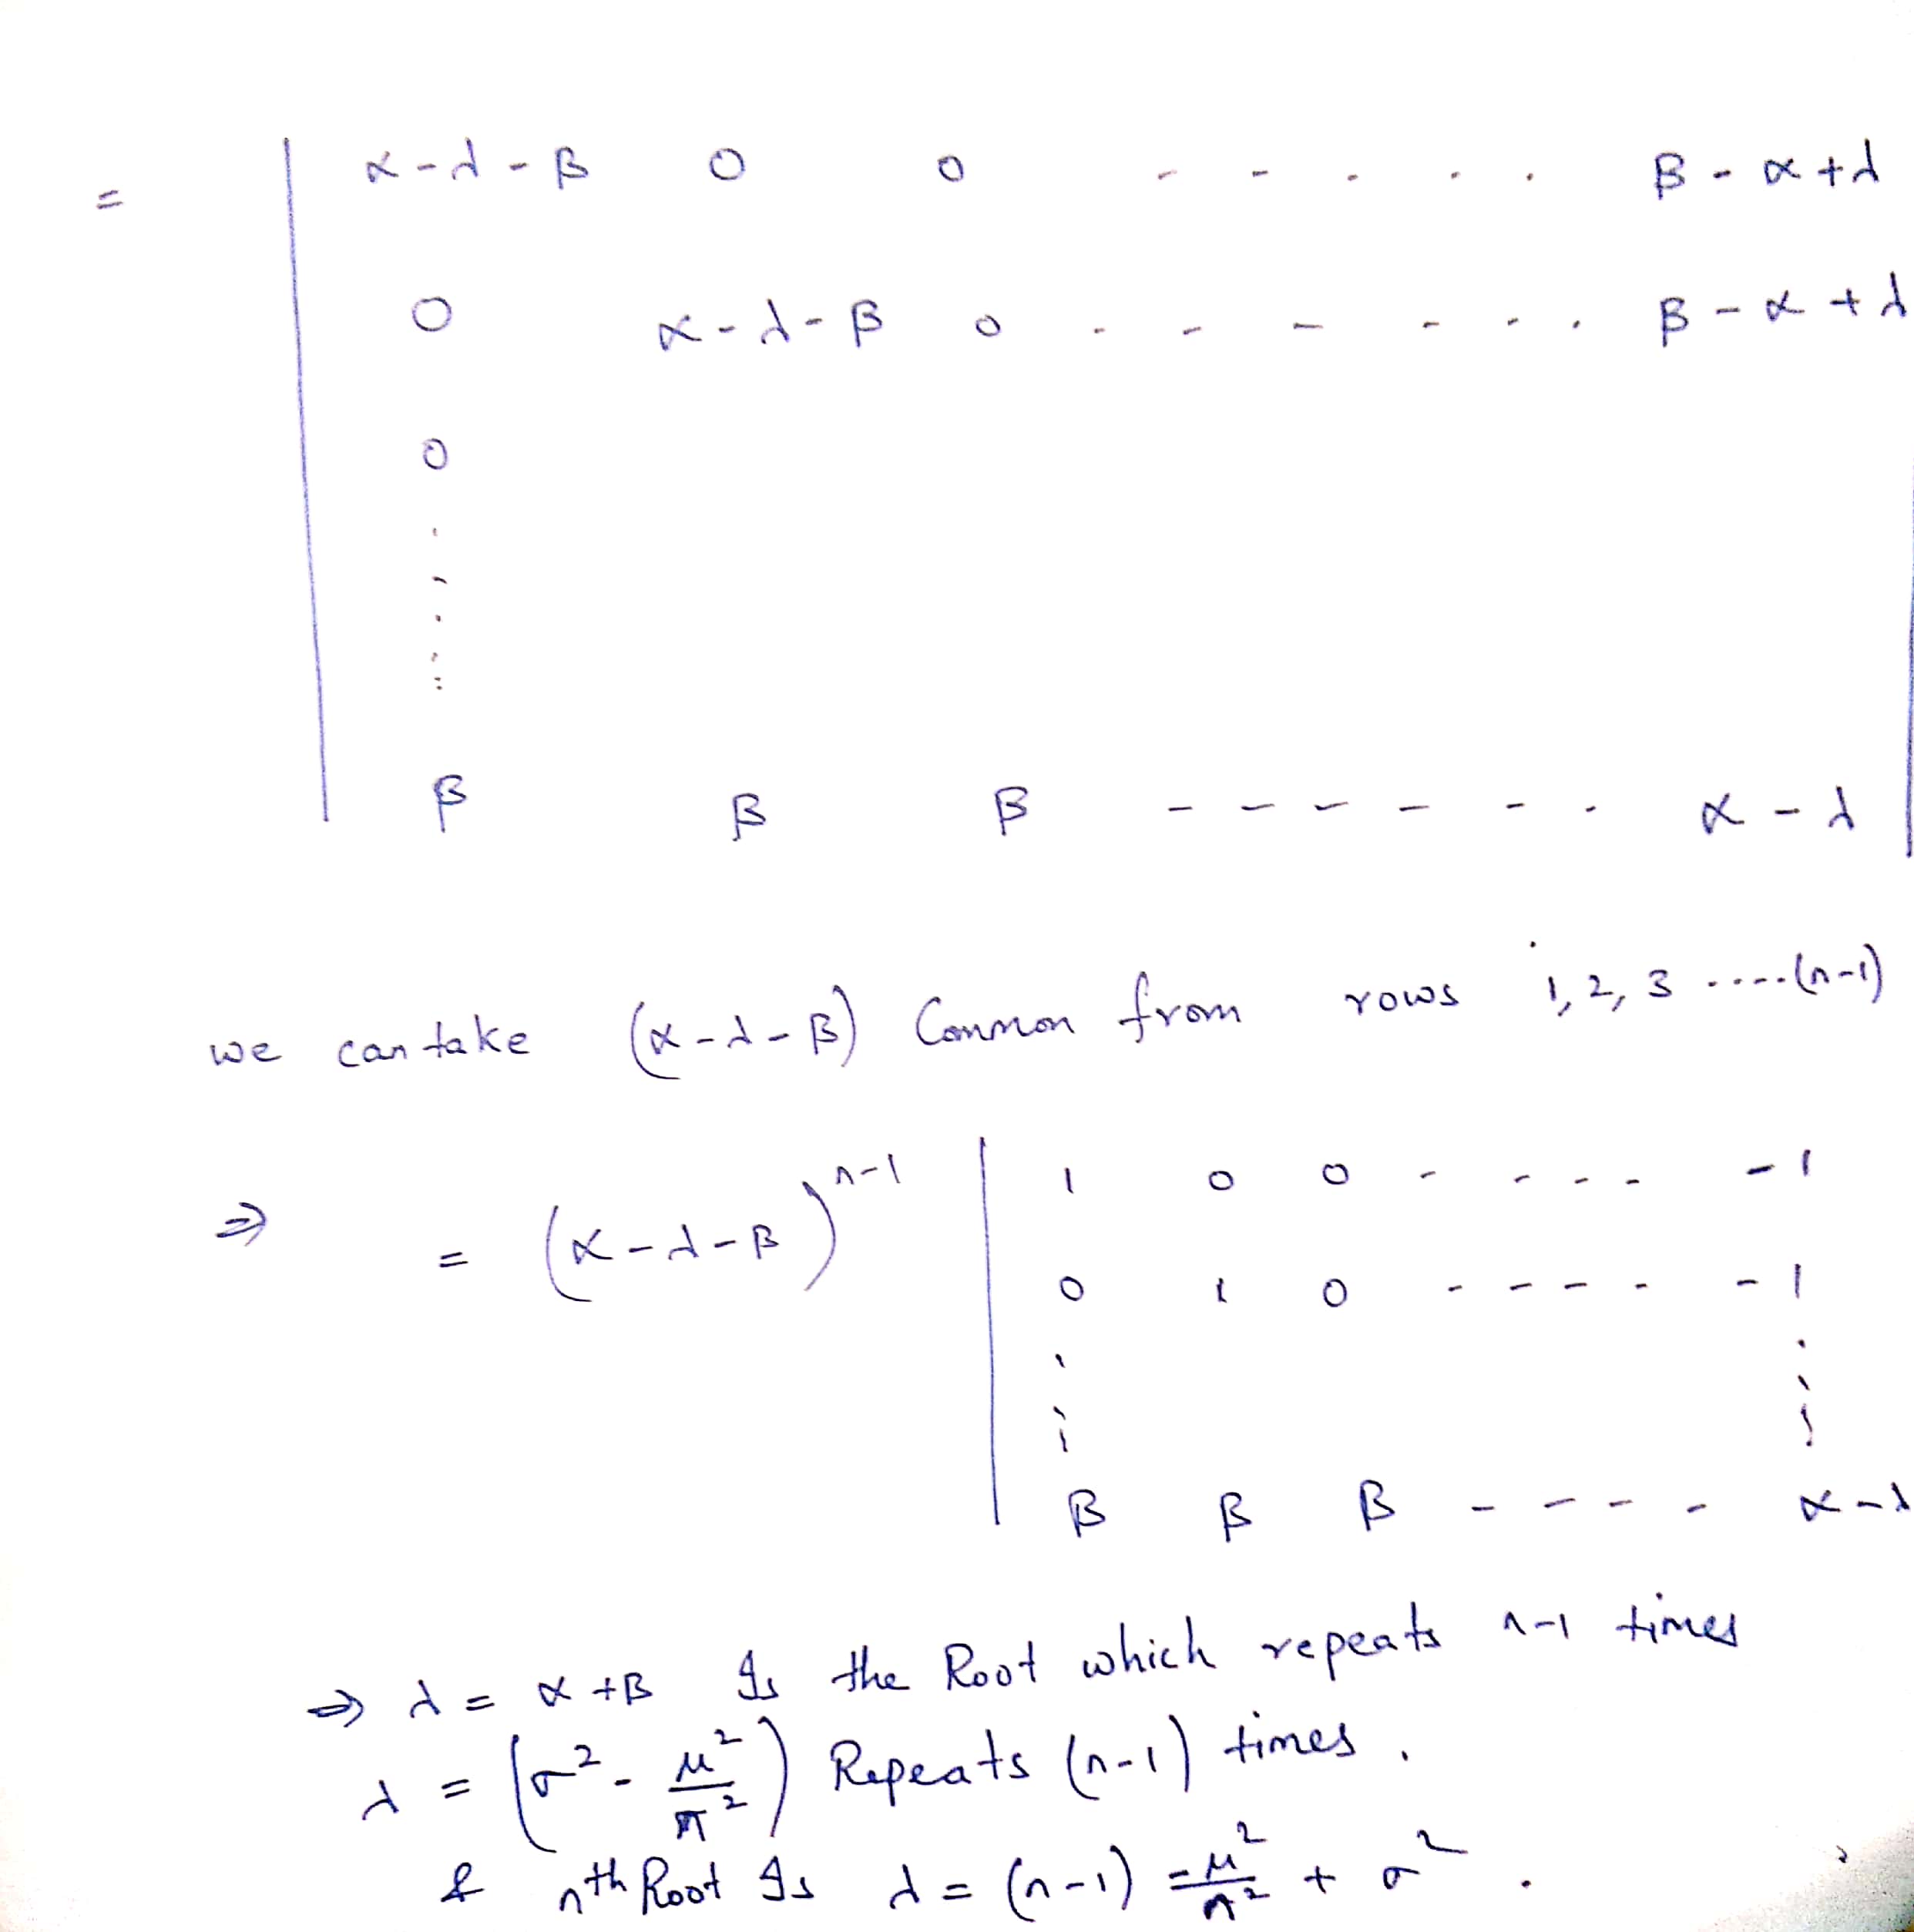 = | α-λ-β 0 0 - - - - - . β-α+λ |
0 α-λ-β 0 - - - - - . β-α+λ
0
.
.
.
:
β β β - - - - - - α-λ
we can take (α-λ-β) Common from rows 1, 2, 3 .....(n-1)
⇒ = (α-λ-β)^{n-1} | 1 0 0 - - - - -1
0 1 0 - - - - -1
⋮ ⋮
β β β - - - - α-λ
⇒ λ = α+β Is the Root which repeats n-1 times
λ = (σ² - μ²/π²) Repeats (n-1) times.
& nth Root Is λ = (n-1) -μ²/n² + σ².